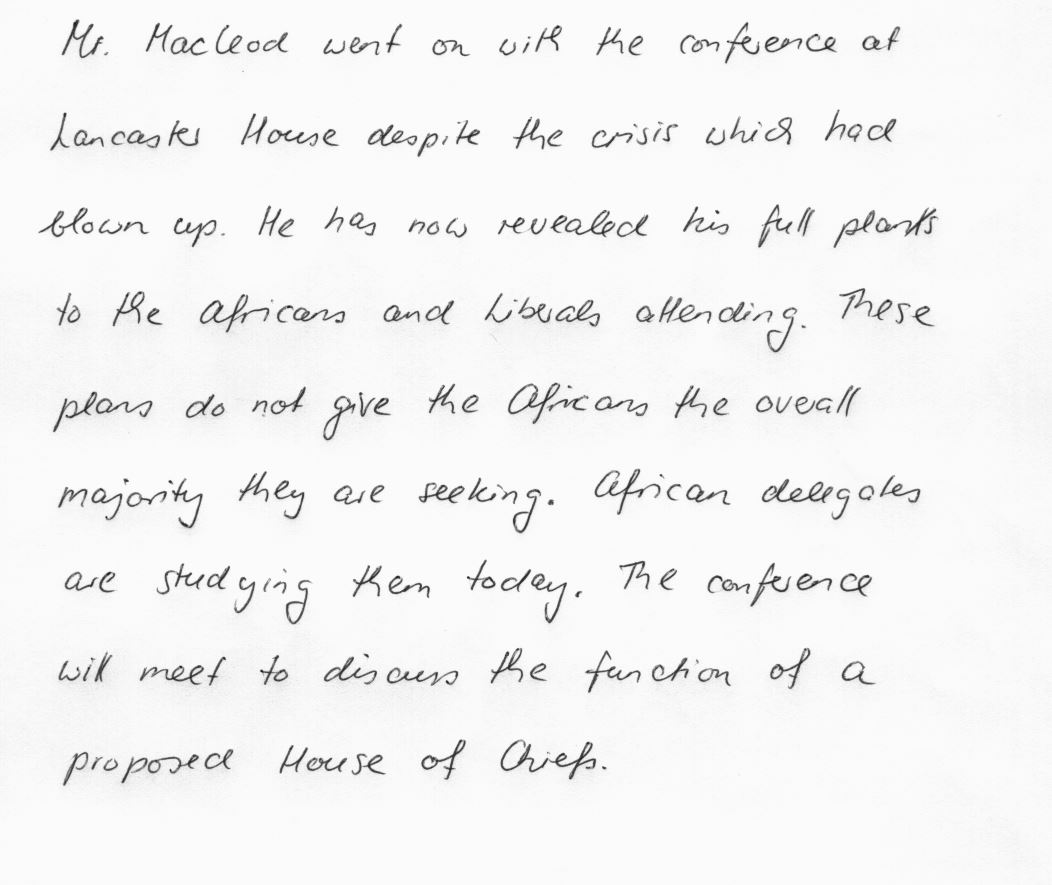 Mr. Macleod went on with the conference at
Lancaster House despite the crisis which had
blown up. He has now revealed his full plants
to the Africans and Liberals attending. These
plans do not give the Africans the overall
majority they are seeking. African delegates
are studying them today. The conference
will meet to discuss the function of a
proposed House of Chiefs.